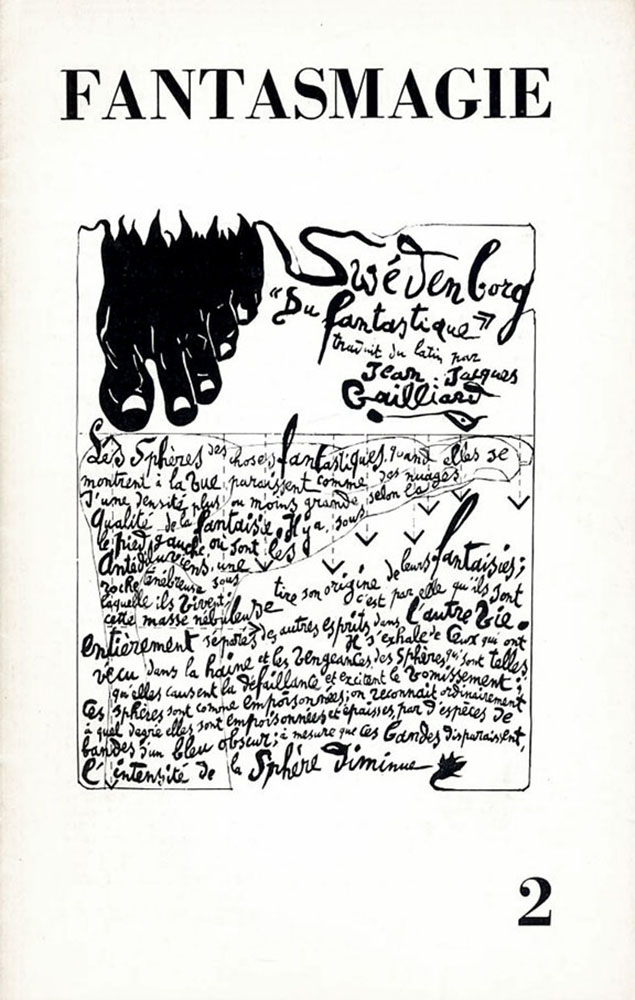 FANTASMAGIE
Swédenborg
"Du
fantastique"
traduit du latin par
Jean-Jacques
Gailliard
Les Sphères des choses fantastiques, quand elles se
montrent à la vue paraissent comme des nuages
d'une densité plus ou moins grande selon la
Qualité de la fantaisie. Il y a, sous
le pied gauche, où sont les
Antédiluviens, une
roche ténébreuse sous
laquelle ils vivent;
cette masse nébuleuse
tire son origine de leurs fantaisies;
c'est par elle qu'ils sont
entièrement séparés des autres esprits dans l'autre vie.
Il s'exhale de Ceux qui ont
vécu dans la haine et les vengeances des Sphères qui sont telles
qu'elles causent la défaillance et excitent le vomissement;
Ces sphères sont comme empoisonnées; on reconnait ordinairement
à quel degré elles sont empoisonnées et épaisses, par d'espèces de
bandes d'un bleu obscur; à mesure que ces bandes disparaissent,
l'intensité de la Sphère diminue
2